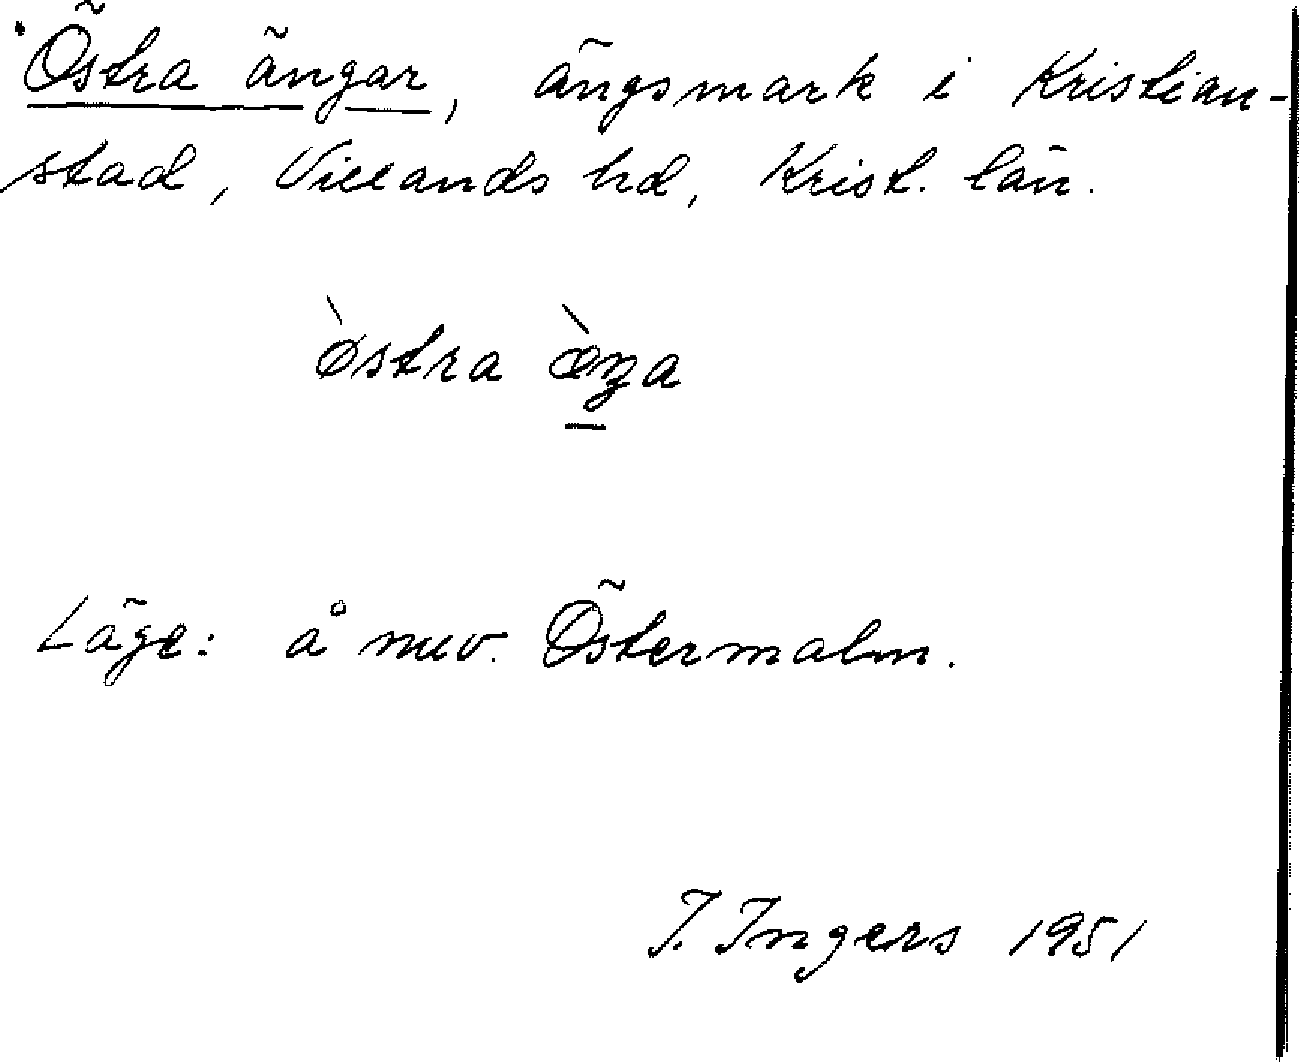 Östra ängar, ängsmark i Kristian-
stad, Villands hd, Krist. län.
östra æŋa
Läge: å mev. Östermalm.
I. Ingers 1951